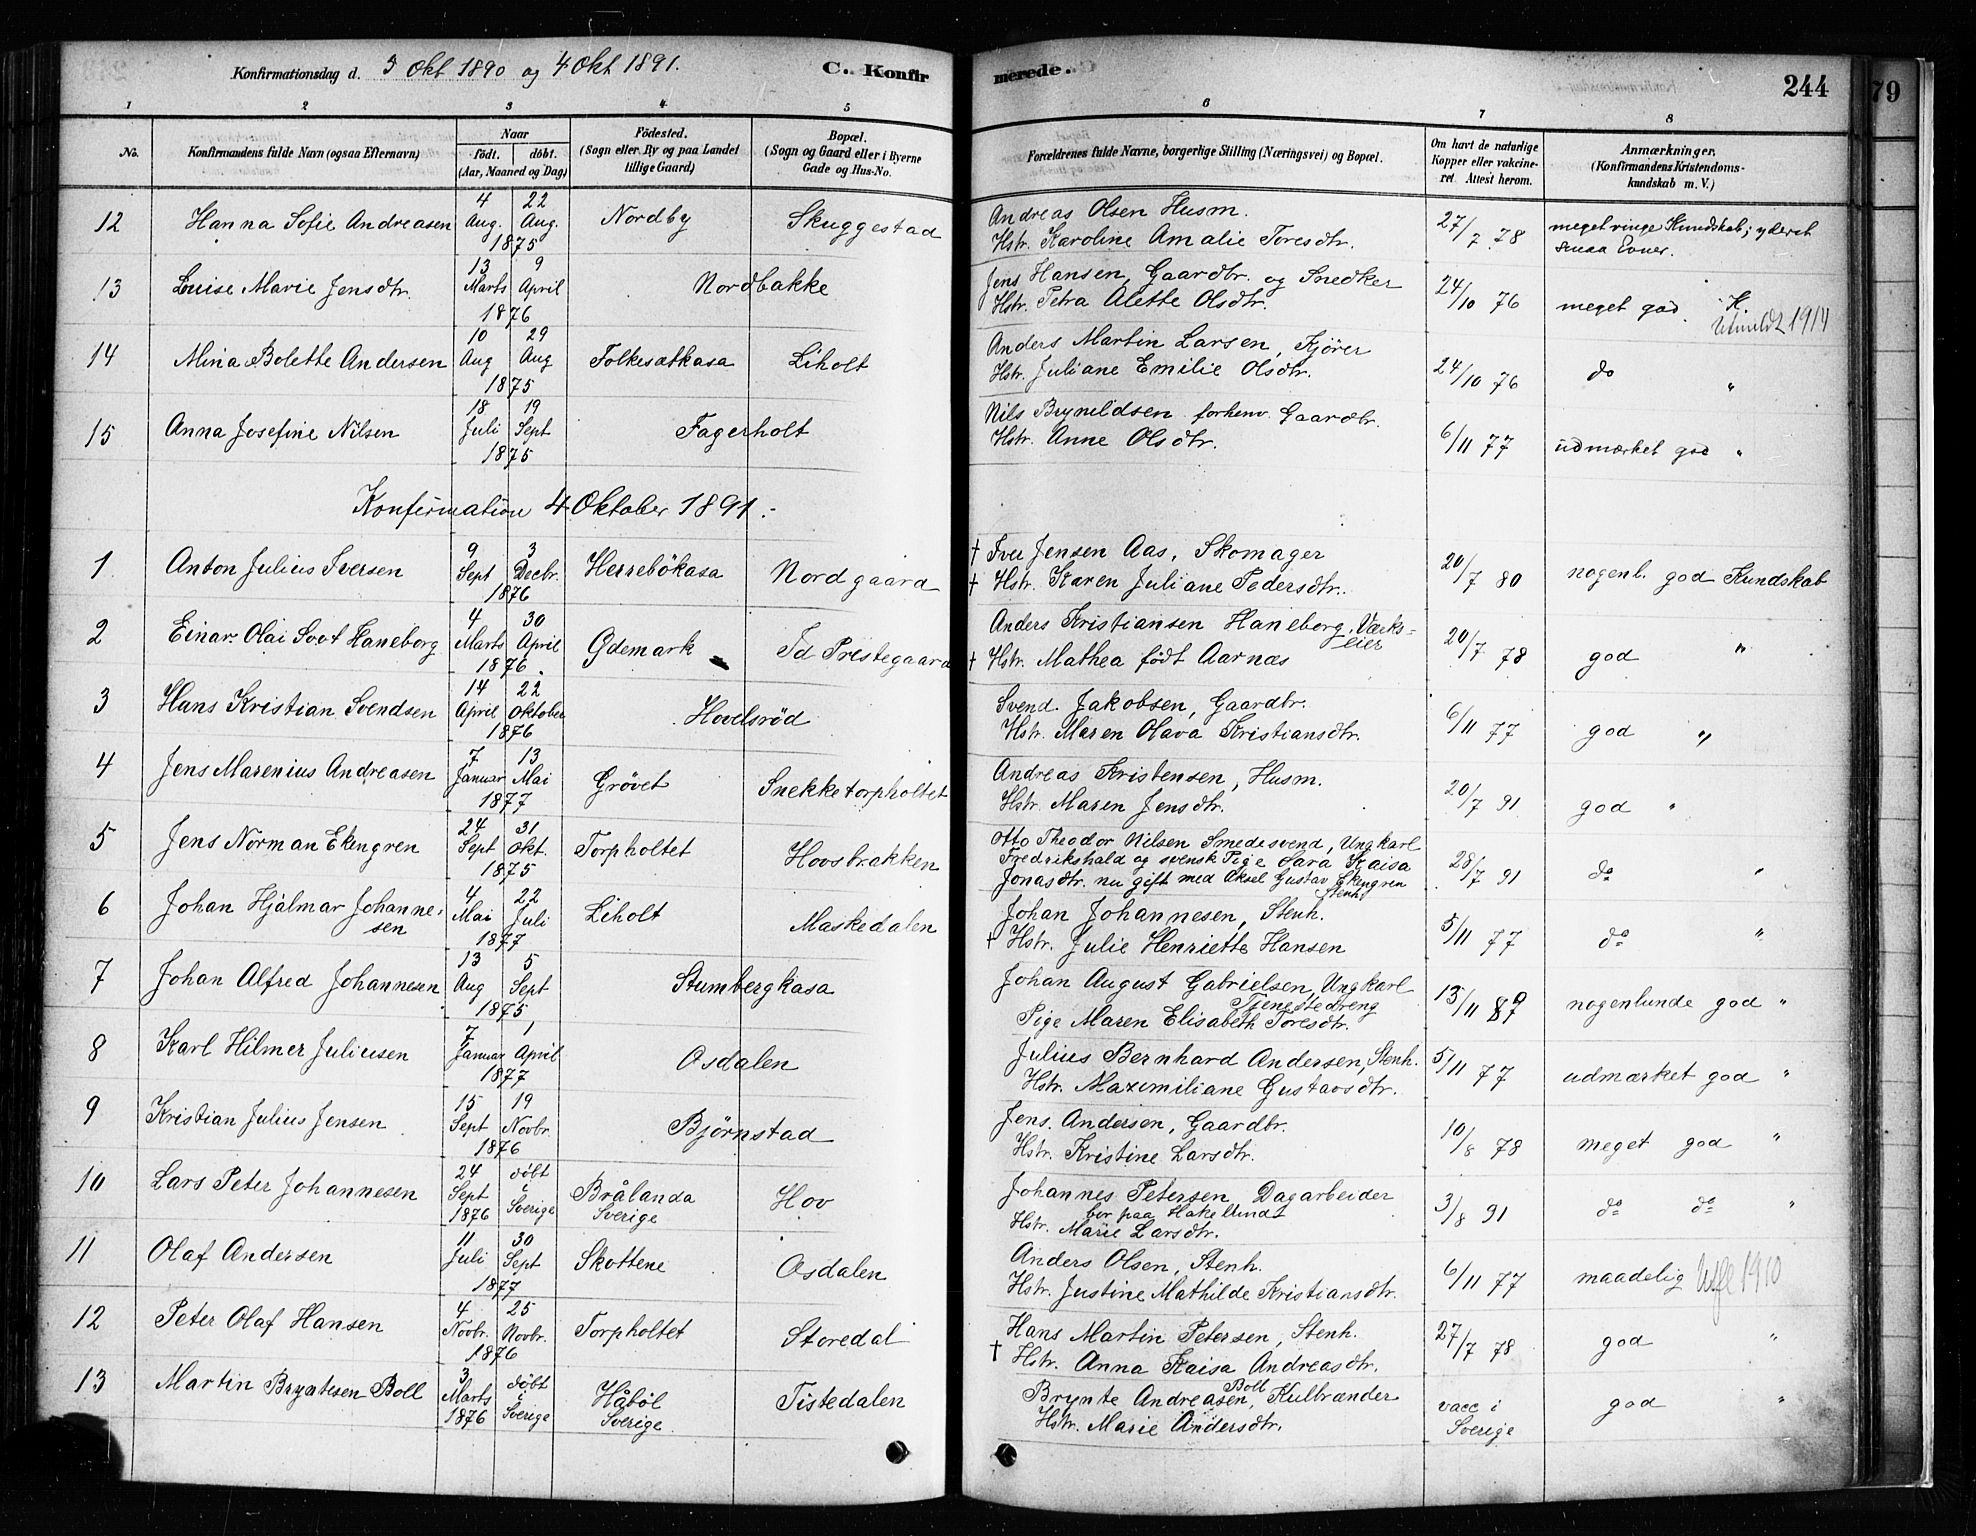 Konfirmationsdag d. 5 Okt 1890 og 4 Okt 1891. C. Konfir
merede. 244
79
1 2 3 4 5 6 7 8
No. Konfirmandens fulde Navn (ogsaa Efternavn) Naar født. døbt. (Aar, Maaned og Dag) Fødested. (Sogn eller By og paa Landet tillige Gaard.) Bopæl. (Sogn og Gaard eller i Byerne Gade og Hus-No. Forældrenes fulde Navne, borgerlige Stilling (Næringsvei) og Bopæl. Om havt de naturlige Kopper eller vakcineret Attest herom. Anmærkninger, (Konfirmandens Kristendomskundskab m. V.)
12 Hanna Sofie Andreasen 4 Aug. 22 Aug. 1875 Nordby Skuggestad Andreas Olsen Husm. Hstr. Karoline Amalie Toresdtr. 27/7 78 meget ringe Kundskab; yderst smaa Evner.
13 Louise Marie Jensdtr. 13 Marts 9 April 1876 Nordbakke Jens Hansen, Gaardbr. og Snedker Hstr. Petra Alette Olsdtr. 24/10 76 meget god K. Utmeldt 1914
14 Mina Bolette Andersen 10 Aug 29 Aug 1875 Folkesatkasa Liholt Anders Martin Larsen, Kjører Hstr. Juliane Emilie Olsdtr. 24/10 76 do "
15 Anna Josefine Nilsen 18 Juli 19 Sept 1875 Fagerholt Nils Brynildsen forhenv. Gaardbr. Hstr. Anne Olsdtr. 6/11 77 udmærket god "
Konfirmation 4 Oktober 1891.-
1 Anton Julius Iversen 9 Sept 3 Decbr. 1876 Herrebökasa Nordgaard † Iver Jensen Aas, Skomager † Hstr. Karen Juliane Pedersdtr. 20/7 80 nogenl. god Kundskab
2 Einar Olai Soot Haneborg 4 Marts 30 April 1876 Ødemark Id Prestegaard Anders Kristiansen Haneborg, Værkseier † Hstr. Mathea født Aarnæs 20/7 78 god "
3 Hans Kristian Svendsen 14 April 22 Oktober 1876 Hovelsrød Svend Jakobsen, Gaardbr. Hstr. Maren Olava Kristiansdtr. 6/11 77 god "
4 Jens Marenius Andreasen 7 Januar 13 Mai 1877 Grövet Snekketorpholtet Andreas Kristensen, Husm. Hstr. Maren Jensdtr. 20/7 91 god "
5 Jens Norman Ekengren 24 Sept 31 Okt. 1875 Torpholtet Hovsbrakken Otto Theodor Nilsen Smedesvend, Ungkarl Fredrikshald og svensk Pige Sara Kaisa Jonasdtr. nu gift med Aksel Gustav Ekengren Stenh. 28/7 91 do "
6 Johan Hjalmar Johannesen 4 Mai 22 Juli 1877 Liholt Maskedalen Johan Johannesen, Stenh. † Hstr. Julie Henriette Hansen 5/11 77 do "
7 Johan Alfred Johannesen 13 Aug 5 Sept 1875 Stumbergkasa Johan August Gabrielsen, Ungkarl Tjenestedreng Pige Maren Elisabeth Toresdtr. 13/11 nogenlunde god "
8 Karl Hilmer Juliusen 7 Januar 1 April 1877 Osdalen Julius Bernhard Andersen, Stenh. Hstr. Maximiliane Gustavsdtr. 5/11 77 udmærket god "
9 Kristian Julius Jensen 15 Sept 19 Novbr. 1876 Björnstad Jens Andersen, Gaardbr. Hstr. Kristine Larsdtr. 10/8 78 meget god "
10 Lars Peter Johannesen 24 Sept 1876 döbt i Sverige Brålanda Sverige Hov Johannes Petersen, Dagarbeider bor paa Hakelund Hstr. Marie Larsdtr. 3/8 91 do do "
11 Olaf Andersen 11 Juli 30 Sept 1877 Skottene Osdalen Anders Olsen, Stenh. Hstr. Justine Mathilde Kristiansdtr. 6/11 77 maadelig Utfl 1910
12 Peter Olaf Hansen 4 Novbr. 25 Novbr. 1876 Torpholtet Storedal Hans Martin Petersen, Stenh. † Hstr. Anna Kaisa Andreasdtr. 27/7 78 god "
13 Martin Bryntesen Boll 3 Marts 1876 döbt i Sverige Håböl Sverige Tistedalen Brynte Andreasen Boll, Kulbrænder Hstr. Marie Andersdtr. vacc i Sverige god "